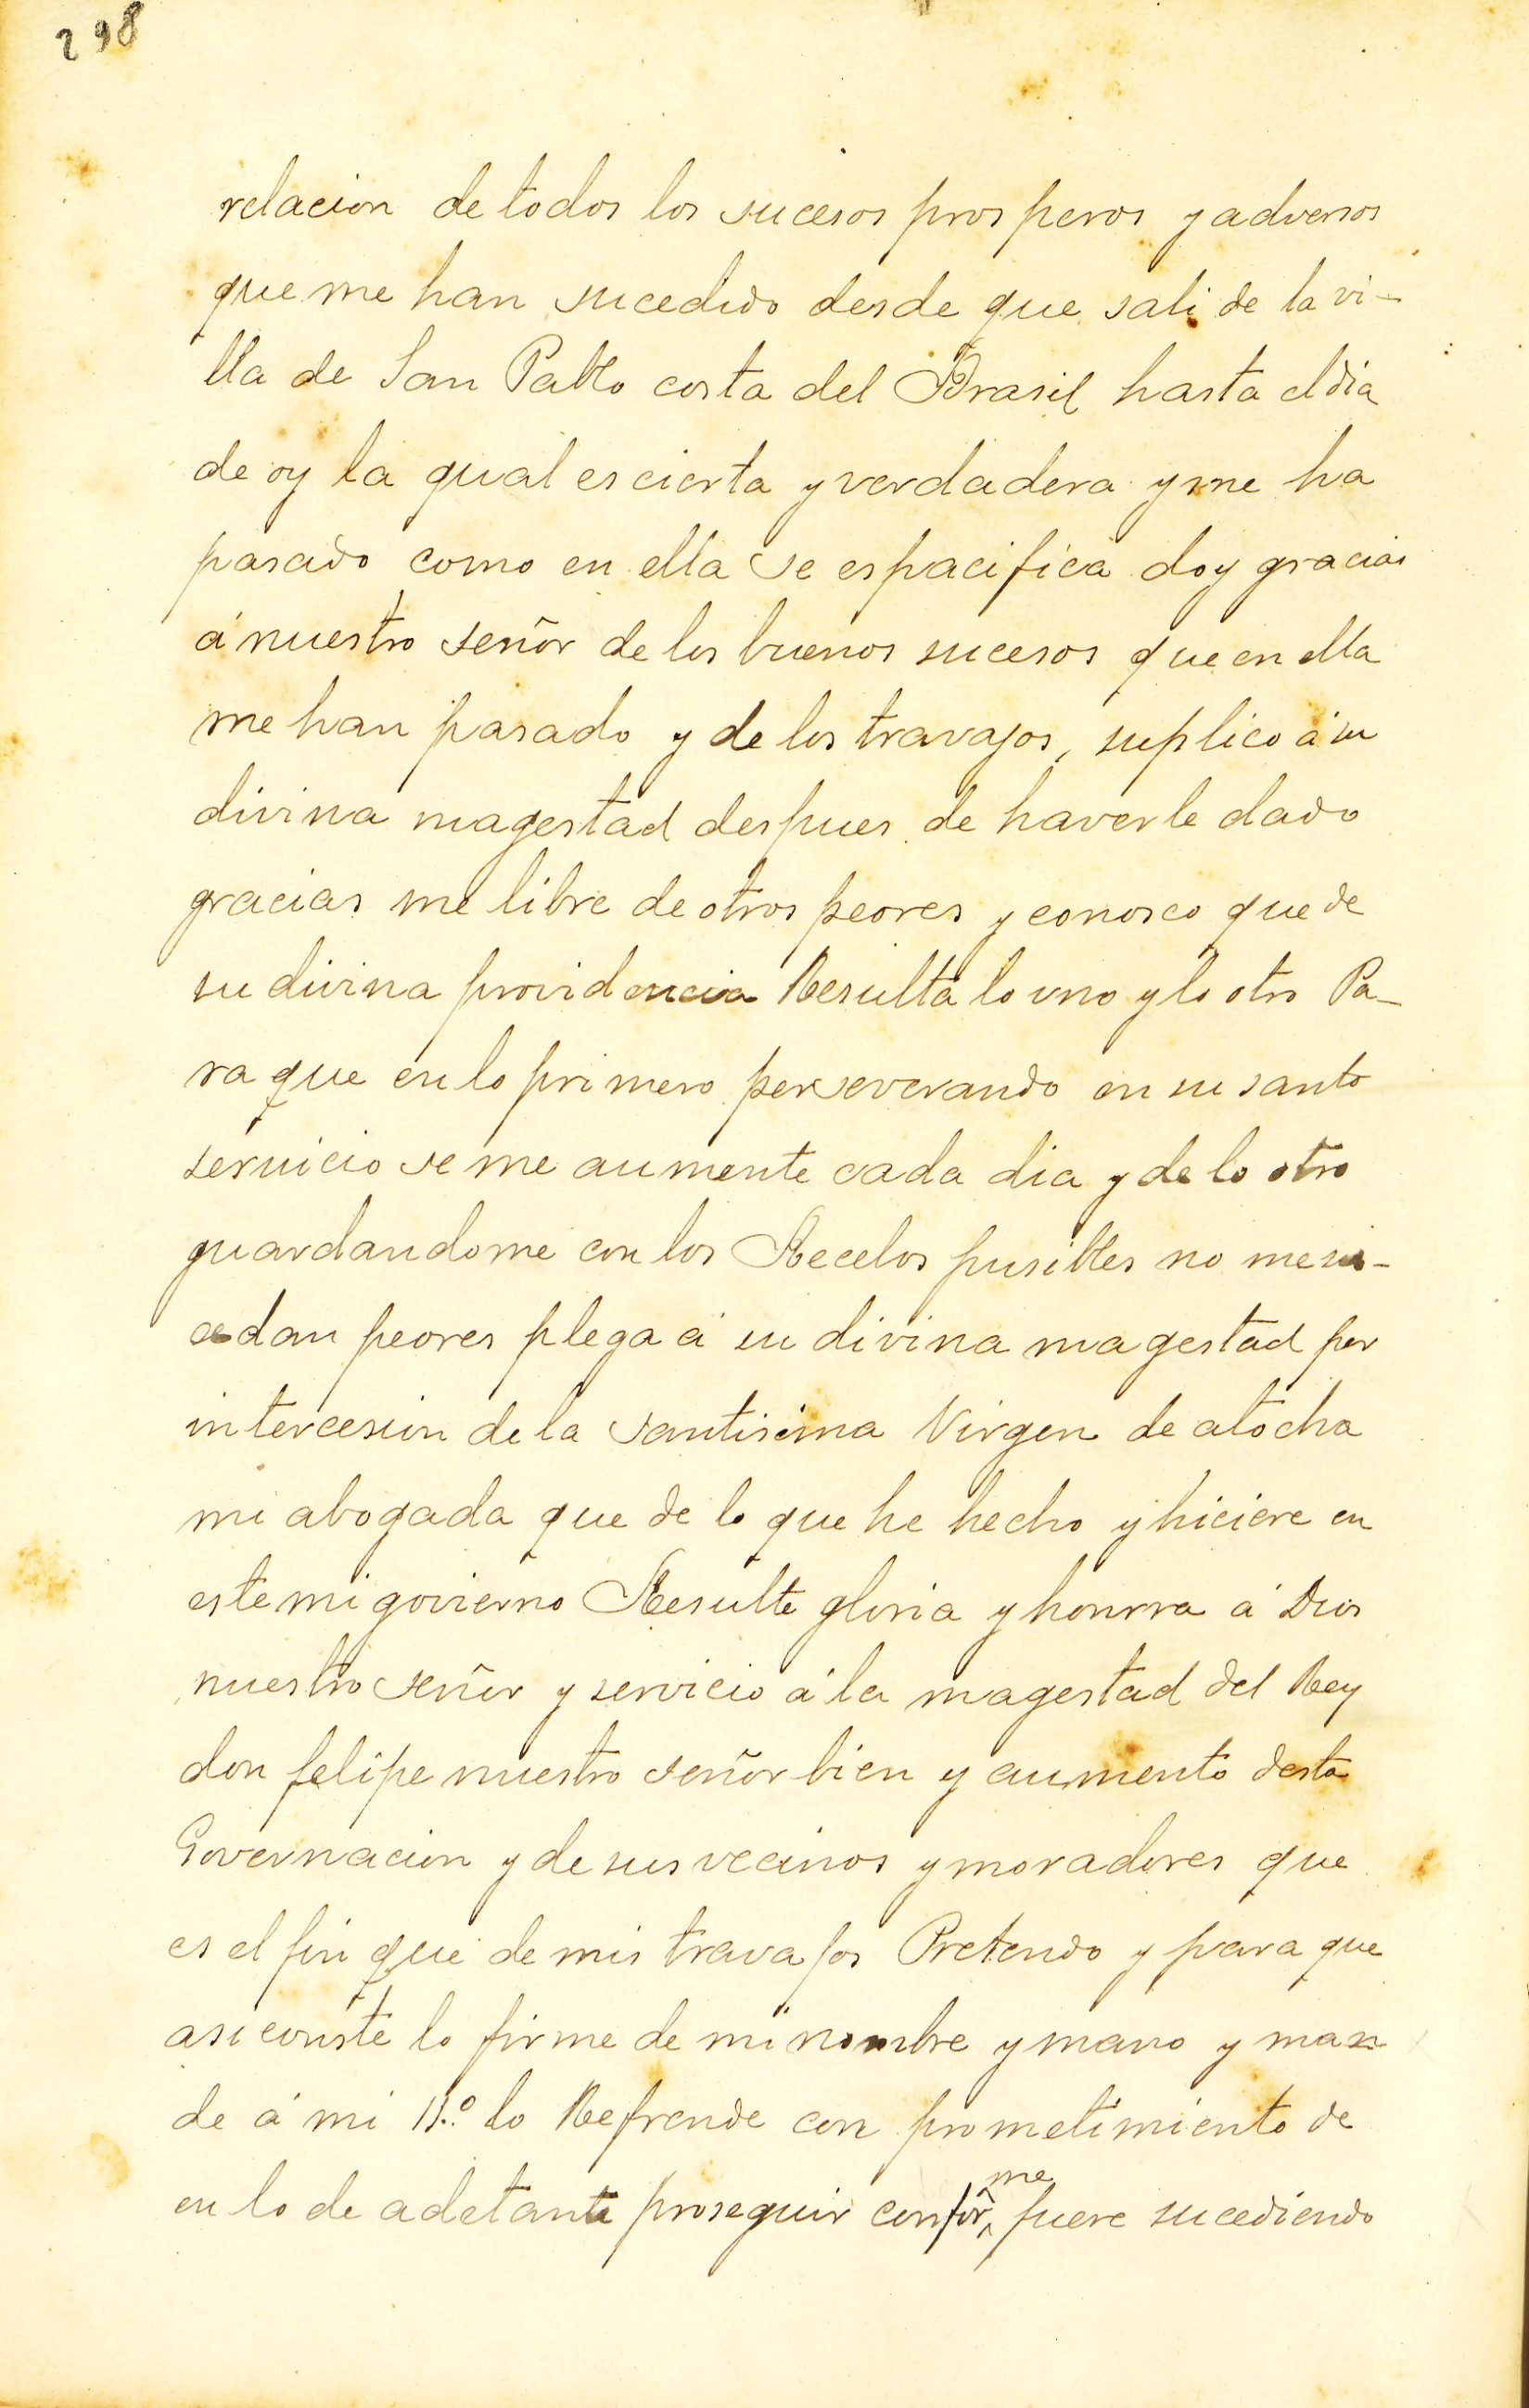 298
relacion de todos los sucesos prosperos y adversos
que me han sucedido desde que sali de la vi-
lla de San Pablo costa del Brasil hasta el dia
de oy la qual es cierta y verdadera y me ha
pasado como en ella se espacifica doy gracias
á nuestro señor de los buenos sucesos que en ella
me han pasado y de los travajos, suplico á su
divina magestad despues de haverle dado
gracias me libre de otros peores y conosco que de
su divina providencia Resulta lo uno y lo otro Pa-
ra que en lo primero perseverando en su santo
seruicio se me aumente cada dia y de lo otro
guardandome con los Recelos pusibles no me su-
cedan peores plega á su divina magestad por
intercesion de la santisima Virgen de atocha
mi abogada que de lo que he hecho y hiciere en
este mi govierno Resulte gloria y honrra á Dios
nuestro señor y servicio á la magestad del Rey
don felipe nuestro señor bien y aumento desta
Governacion y de sus vecinos y moradores que
es el fin que de mis travajos Pretendo y para que
asi conste lo firme de mi nombre y mano y man
de á mi ss.º lo Refrende con prometimiento de
en lo de adelante proseguir conforme fuere sucediendo